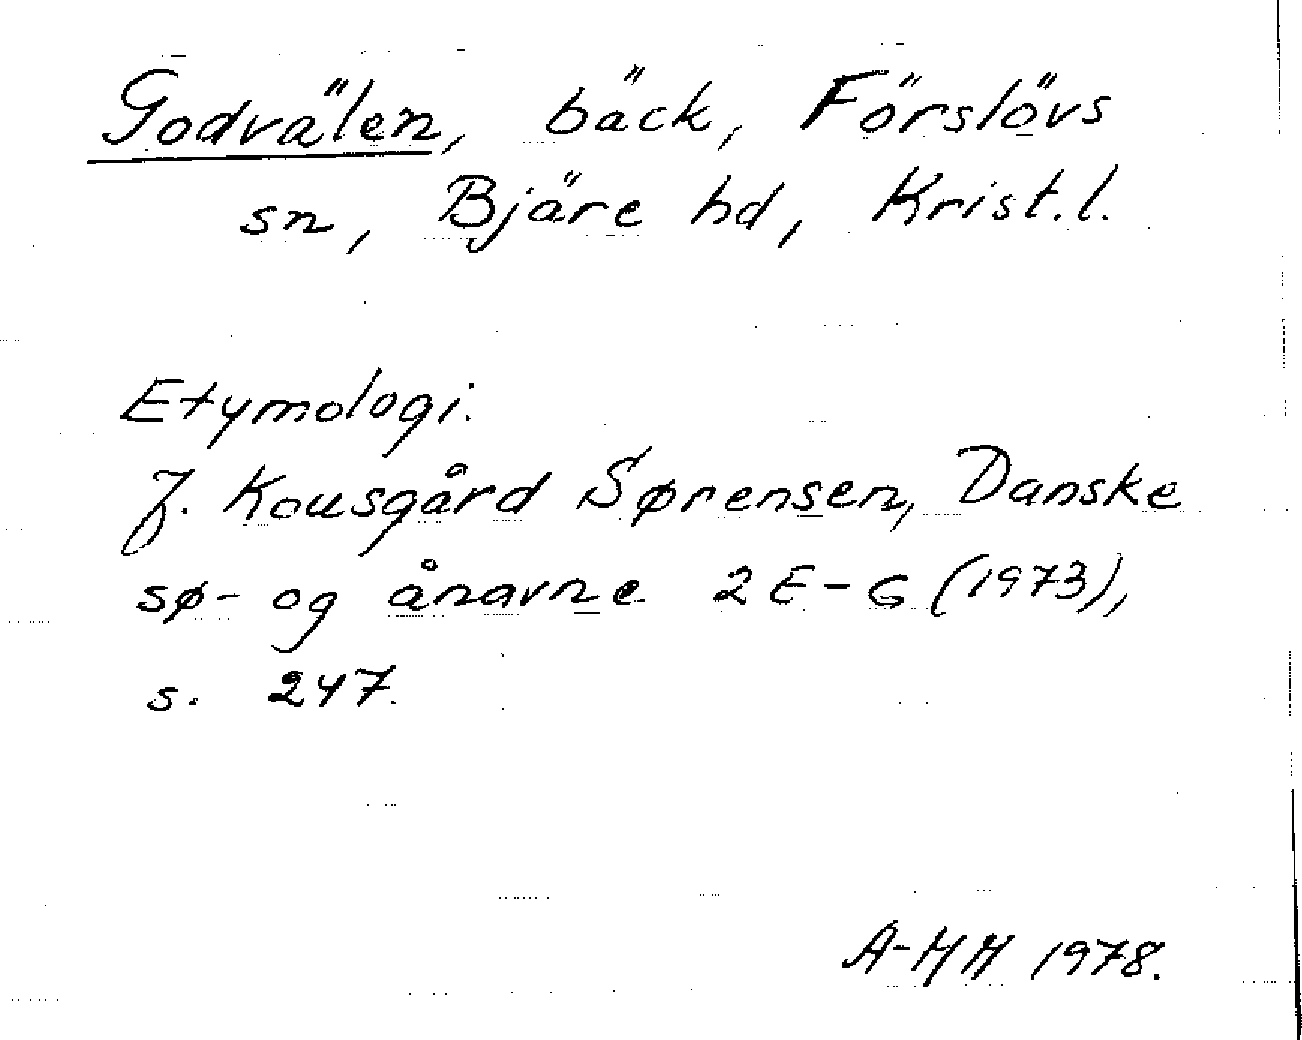 Godvälen, bäck, Förslövs
sn, Bjäre hd, Krist.l.
Etymologi.
J. Kousgård Sørensen, Danske
sø- og ånavne 2 E-G (1973),
s. 247.
A-HH 1978.